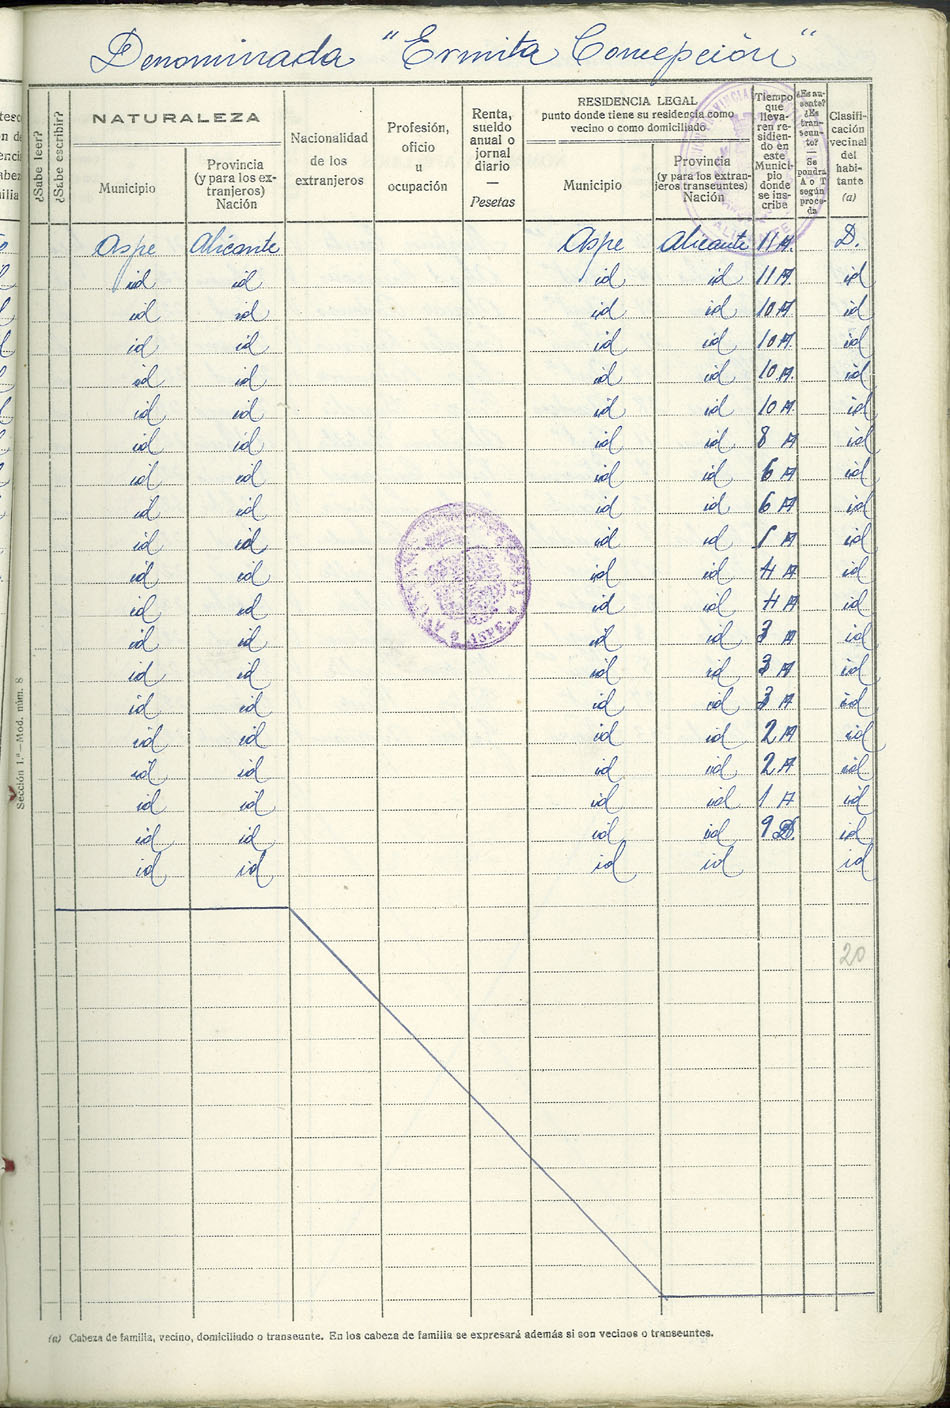 Denominada "Ermita Concepción"
¿Sabe leer?
¿Sabe escribir?
NATURALEZA
Municipio
Provincia
(y para los ex-
tranjeros)
Nación
Nacionalidad
de los
extranjeros
Profesión,
oficio
u
ocupación
Renta,
sueldo
anual o
jornal
diario
—
Pesetas
RESIDENCIA LEGAL
punto donde tiene su residencia como
vecino o como domiciliado
Municipio
Provincia
(y para los extran-
jeros transeuntes)
Nación
Tiempo
que
lleva-
ren re-
sidien-
do en
este
Munici-
pio
donde
se ins-
cribe
¿Es au-
sente?
¿Es
tran-
seun-
te?
—
Se
pondrá
A o T
según
proce-
da
Clasifi-
cación
vecinal
del
habi-
tante
(a)
Aspe Alicante Aspe Alicante 11 A. D.
id id id id 11 A id
id id id id 10 A id
id id id id 10 A. id
id id id id 10 A. id
id id id id 10 A. id
id id id id 8 A id
id id id id 6 A id
id id id id 6 A id
id id id id A id
id id id id 4 A id
id id id id 4 A id
id id id id 3 A id
id id id id 3 A id
id id id id 3 A id
id id id id 2 A id
id id id id 2 A id
id id id id 1 A id
id id id id 9 D. id
id id id id id
20
ASPE
Sección 1.ª—Mod. núm. 8
(a) Cabeza de familia, vecino, domiciliado o transeunte. En los cabeza de familia se expresará además si son vecinos o transeuntes.